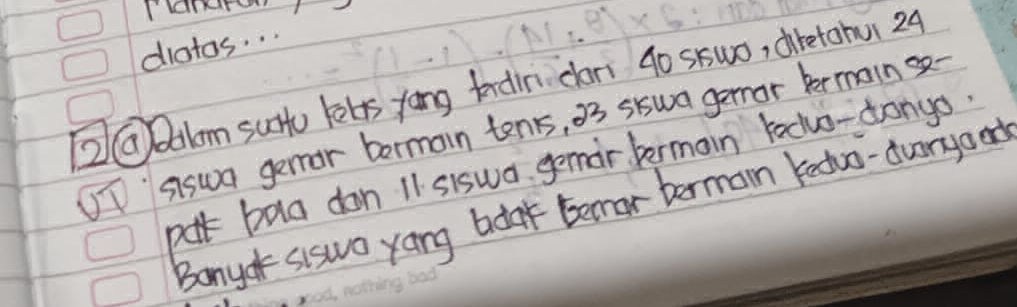 diatas...
2 a Dalam suatu kelas yang terdiri dari 40 siswa, diketahui 24
siswa gemar bermain tenis, 23 siswa gemar bermain se-
pak bola dan 11 siswa gemar bermain kedua-duanya.
Banyak siswa yang tidak gemar bermain kedua-duanya ada
good, nothing bad